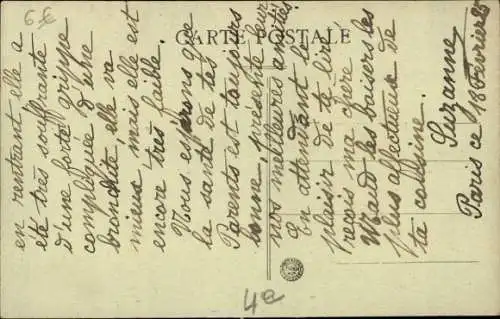 6 €
CARTE POSTALE
en rentrant elle a
été très souffrante
d'une forte grippe
compliquée d'une
bronchite, elle va
mieux, mais elle est
encore très faible.
Nous espérons que
la santé de tes
Parents est toujours
bonne, présente leur
nos meilleures amitiés
En attendant le
plaisir de te lire
reçois ma chère
Maud les baisers les
plus affectueux de
ta cousine.
Suzanne
Paris ce 18 Février
4e